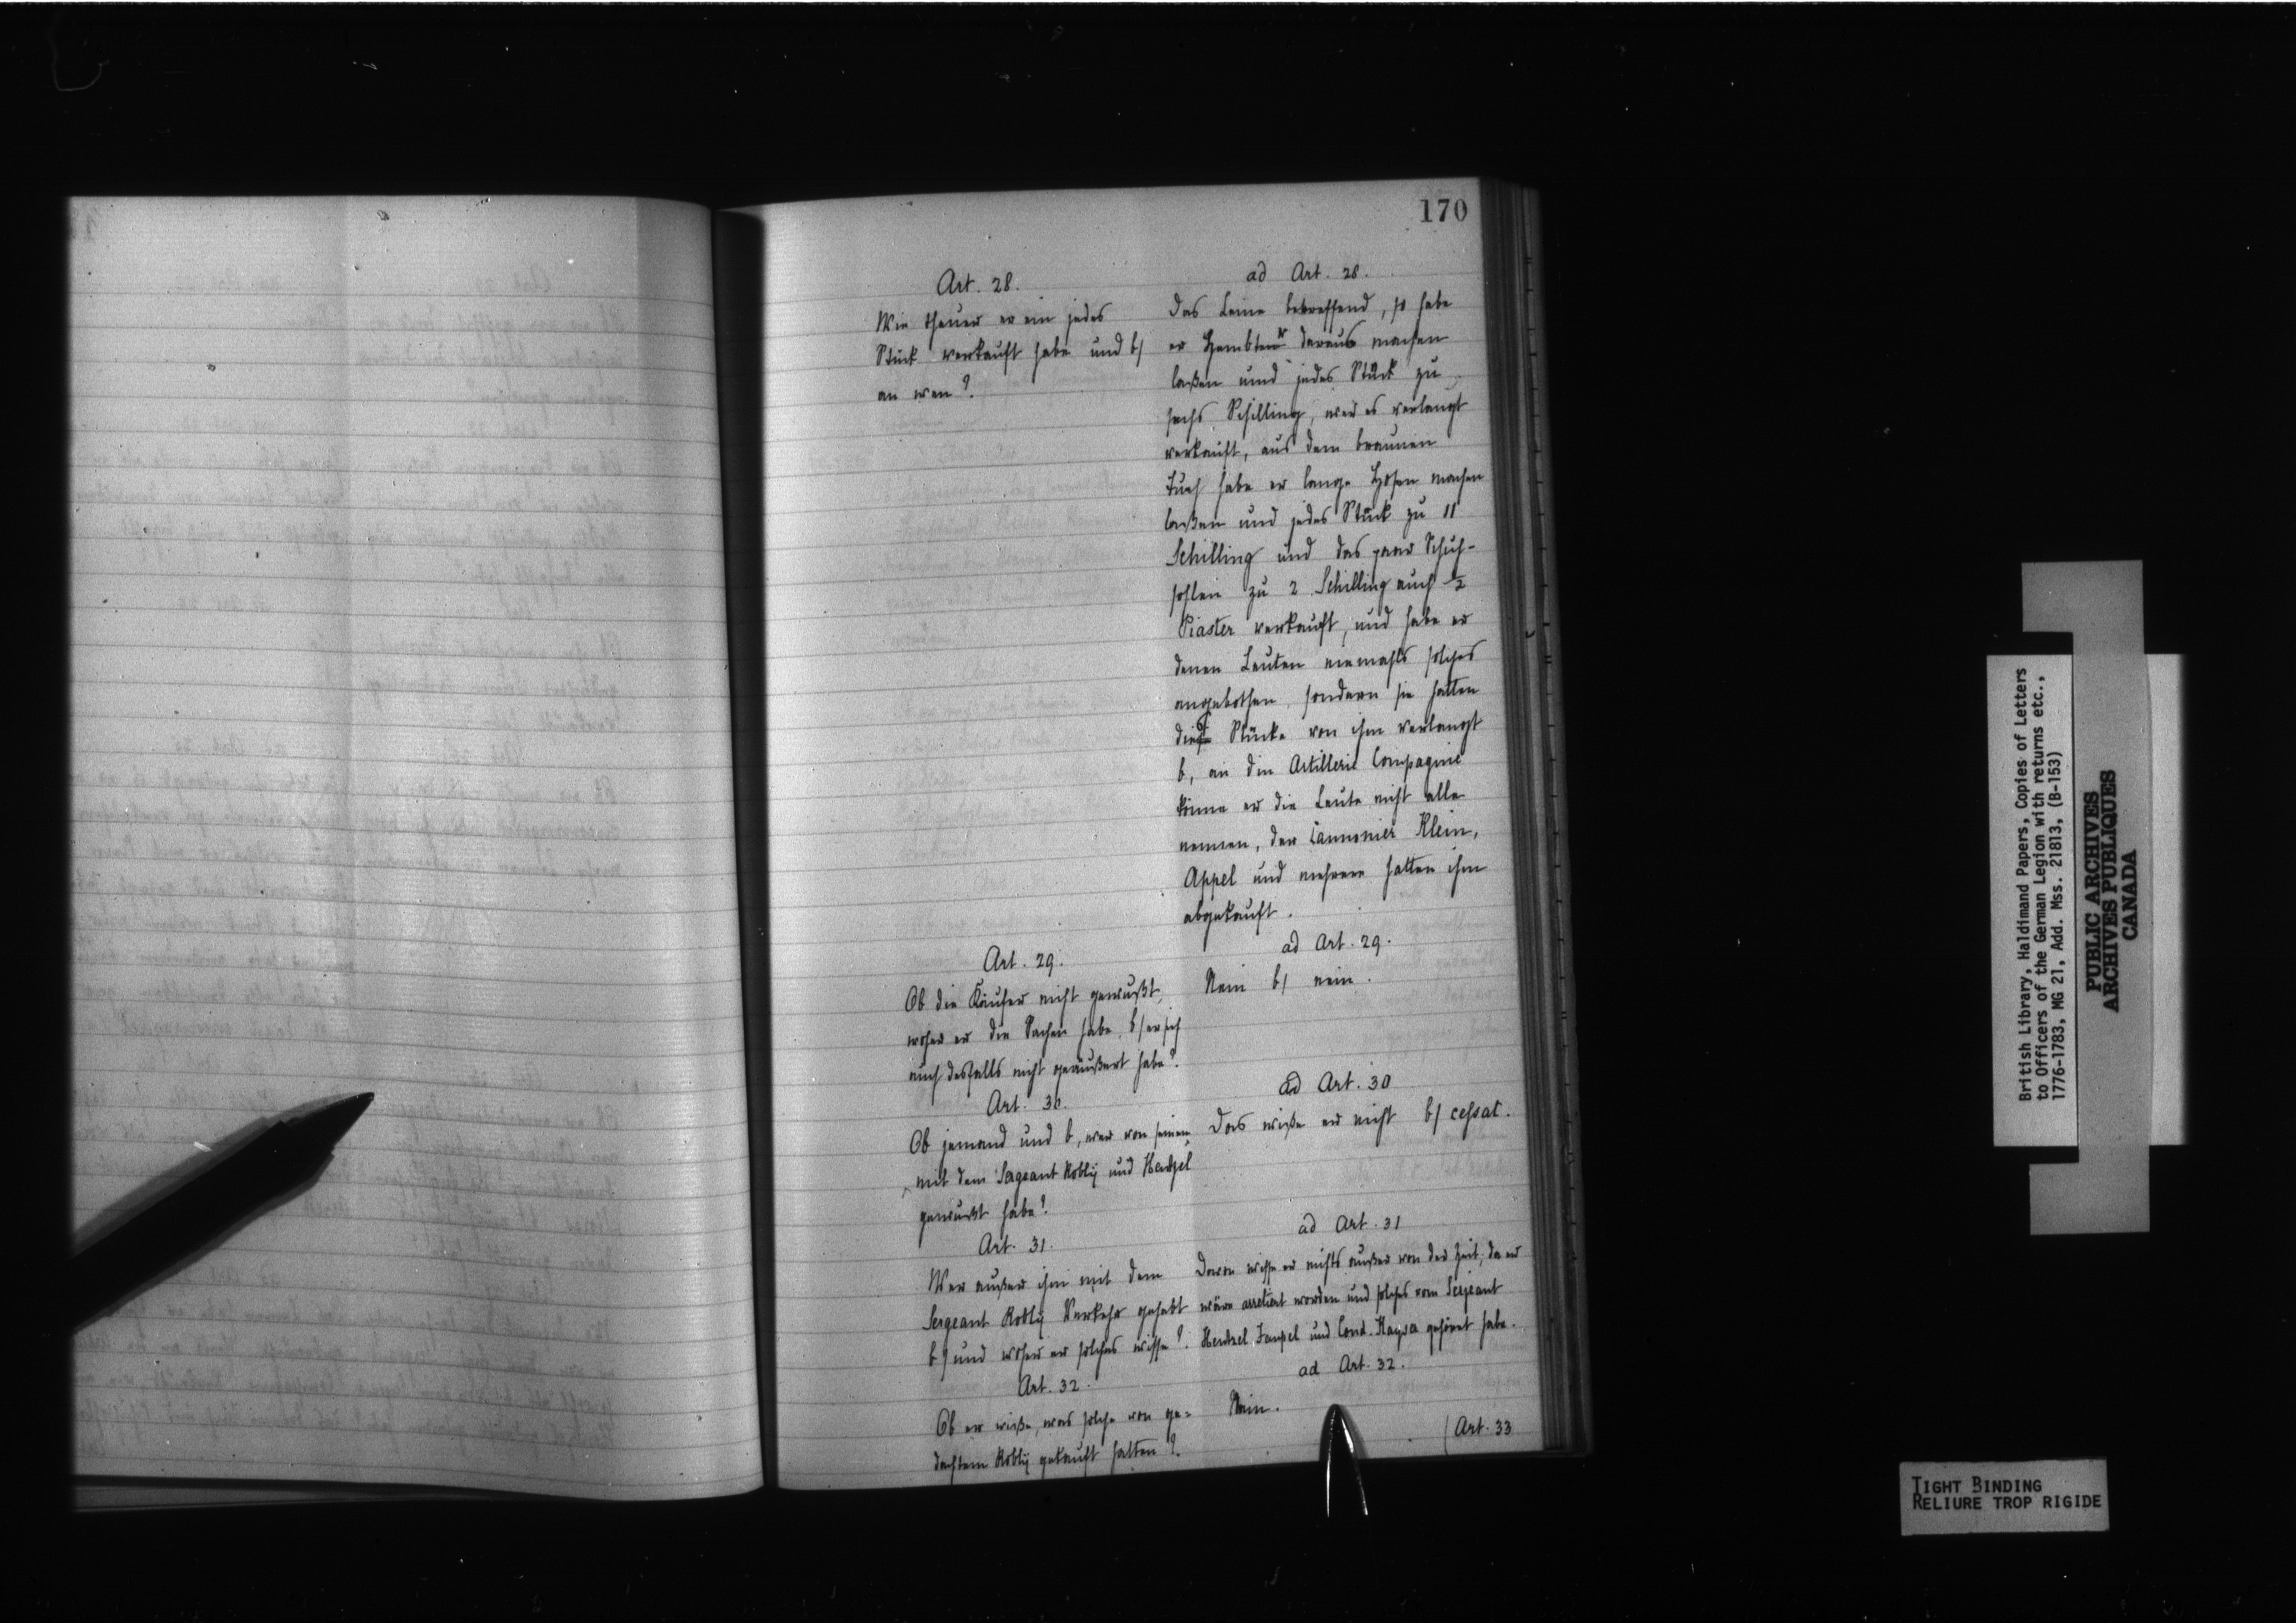 170
Art. 28.
Wie theuer er ein jedes
Stück verkauft habe und b/
an wen?
ad Art. 28.
Das Leine betreffend, so habe
er Hembter daraus machen
laßen und jedes Stück zu
sechs Schilling, wer es verlangt
verkauft, aus dem braunen
Tuch habe er lange Hosen machen
laßen und jedes Stück zu 11
Schilling und das paar Schuh-
sohlen zu 2 Schilling auch ½
Piaster verkauft, und habe er
denen Leuten niemahls solches
angebothen, sondern sie hätten
die Stücke von ihm verlangt
b, an die Artillerie Compagnie
könne er die Leute nicht alle
nennen, der Cannonier Klein,
Appel und mehrere hätten ihm
abgekauft.
Art. 29.
Ob die Käufer nicht gewußt,
woher er die Sachen habe, b/ er sich
auch desfalls nicht geäußert habe?
ad Art. 29.
Nein b/ nein.
Art. 30.
Ob jemand und b, wer von seinem
mit dem Sergeant Robly und Hentzel
gewußt habe?
ad Art. 30
Das wiße er nicht b/ cessat.
Art. 31.
Wer außer ihm mit dem
Sergeant Robly Verkehr gehabt
b/ und woher er solches wisse?
ad Art. 31
Davon wisse er nichts außer von der Zeit, da er
wäre arretiert worden und solches vom Sergeant
Hentzel und Cond. gehöret habe.
Art. 32.
Ob er wiße, was solche von ge-
dachtem Robly gekauft hätten?
ad Art. 32.
Nein.
(Art. 33
British Library, Haldimand Papers, Copies of Letters
to Officers of the German Legion with returns etc.,
1776-1783, MG 21, Add. Mss. 21813, (B-153)
PUBLIC ARCHIVES
ARCHIVES PUBLIQUES
CANADA
TIGHT BINDING
RELIURE TROP RIGIDE